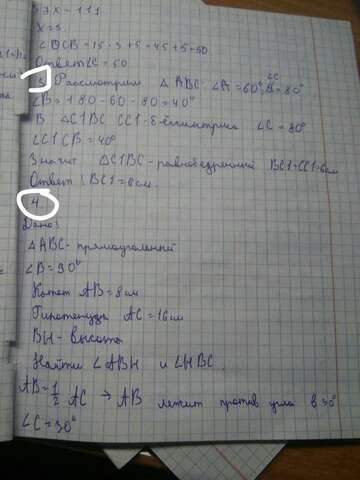 37x=111
x=3
∠DCB=15·3+5=45+5=50
Ответ ∠C=50
Рассмотрим △ABC: ∠A=60° ∠C=80°
∠B=180-60-80=40°
В △C1BC CC1-биссектриса ∠C=80°
∠C1CB=40°
Значит △C1BC-равнобедренный BC1=CC1=6см
Ответ: BC1=6см
4.
Дано:
△ABC-прямоугольный
∠B=90°
Катет AB=8см
Гипотенуза AC=16см
BH-высота
Найти ∠ABH и ∠HBC.
AB=1/2 AC → AB лежит против угла в 30°
∠C=30°